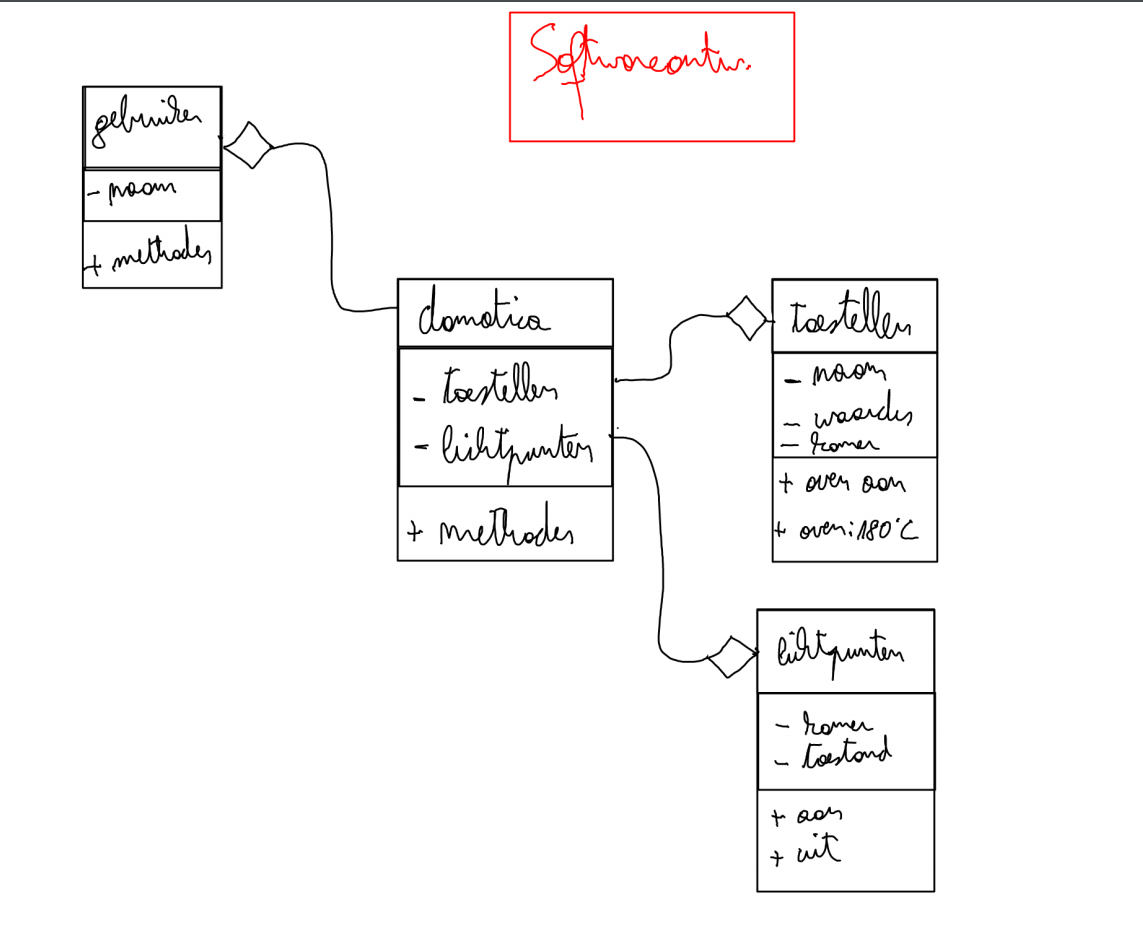 Softwareontw.
gebruiker
- naam
+ methodes
domotica
- toestellen
- lichtpunten
+ methodes
toestellen
- naam
- waardes
- kamer
+ oven aan
+ oven: 180°C
lichtpunten
- kamer
- toestand
+ aan
+ uit